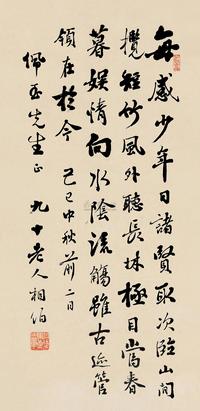 每感少年日諸賢取次臨山間
攬短竹風外聽長林極目當春
暮娛情向水陰流觴雖古迹管
領在於今 己巳中秋前二日
佩先生正 九十老人相伯